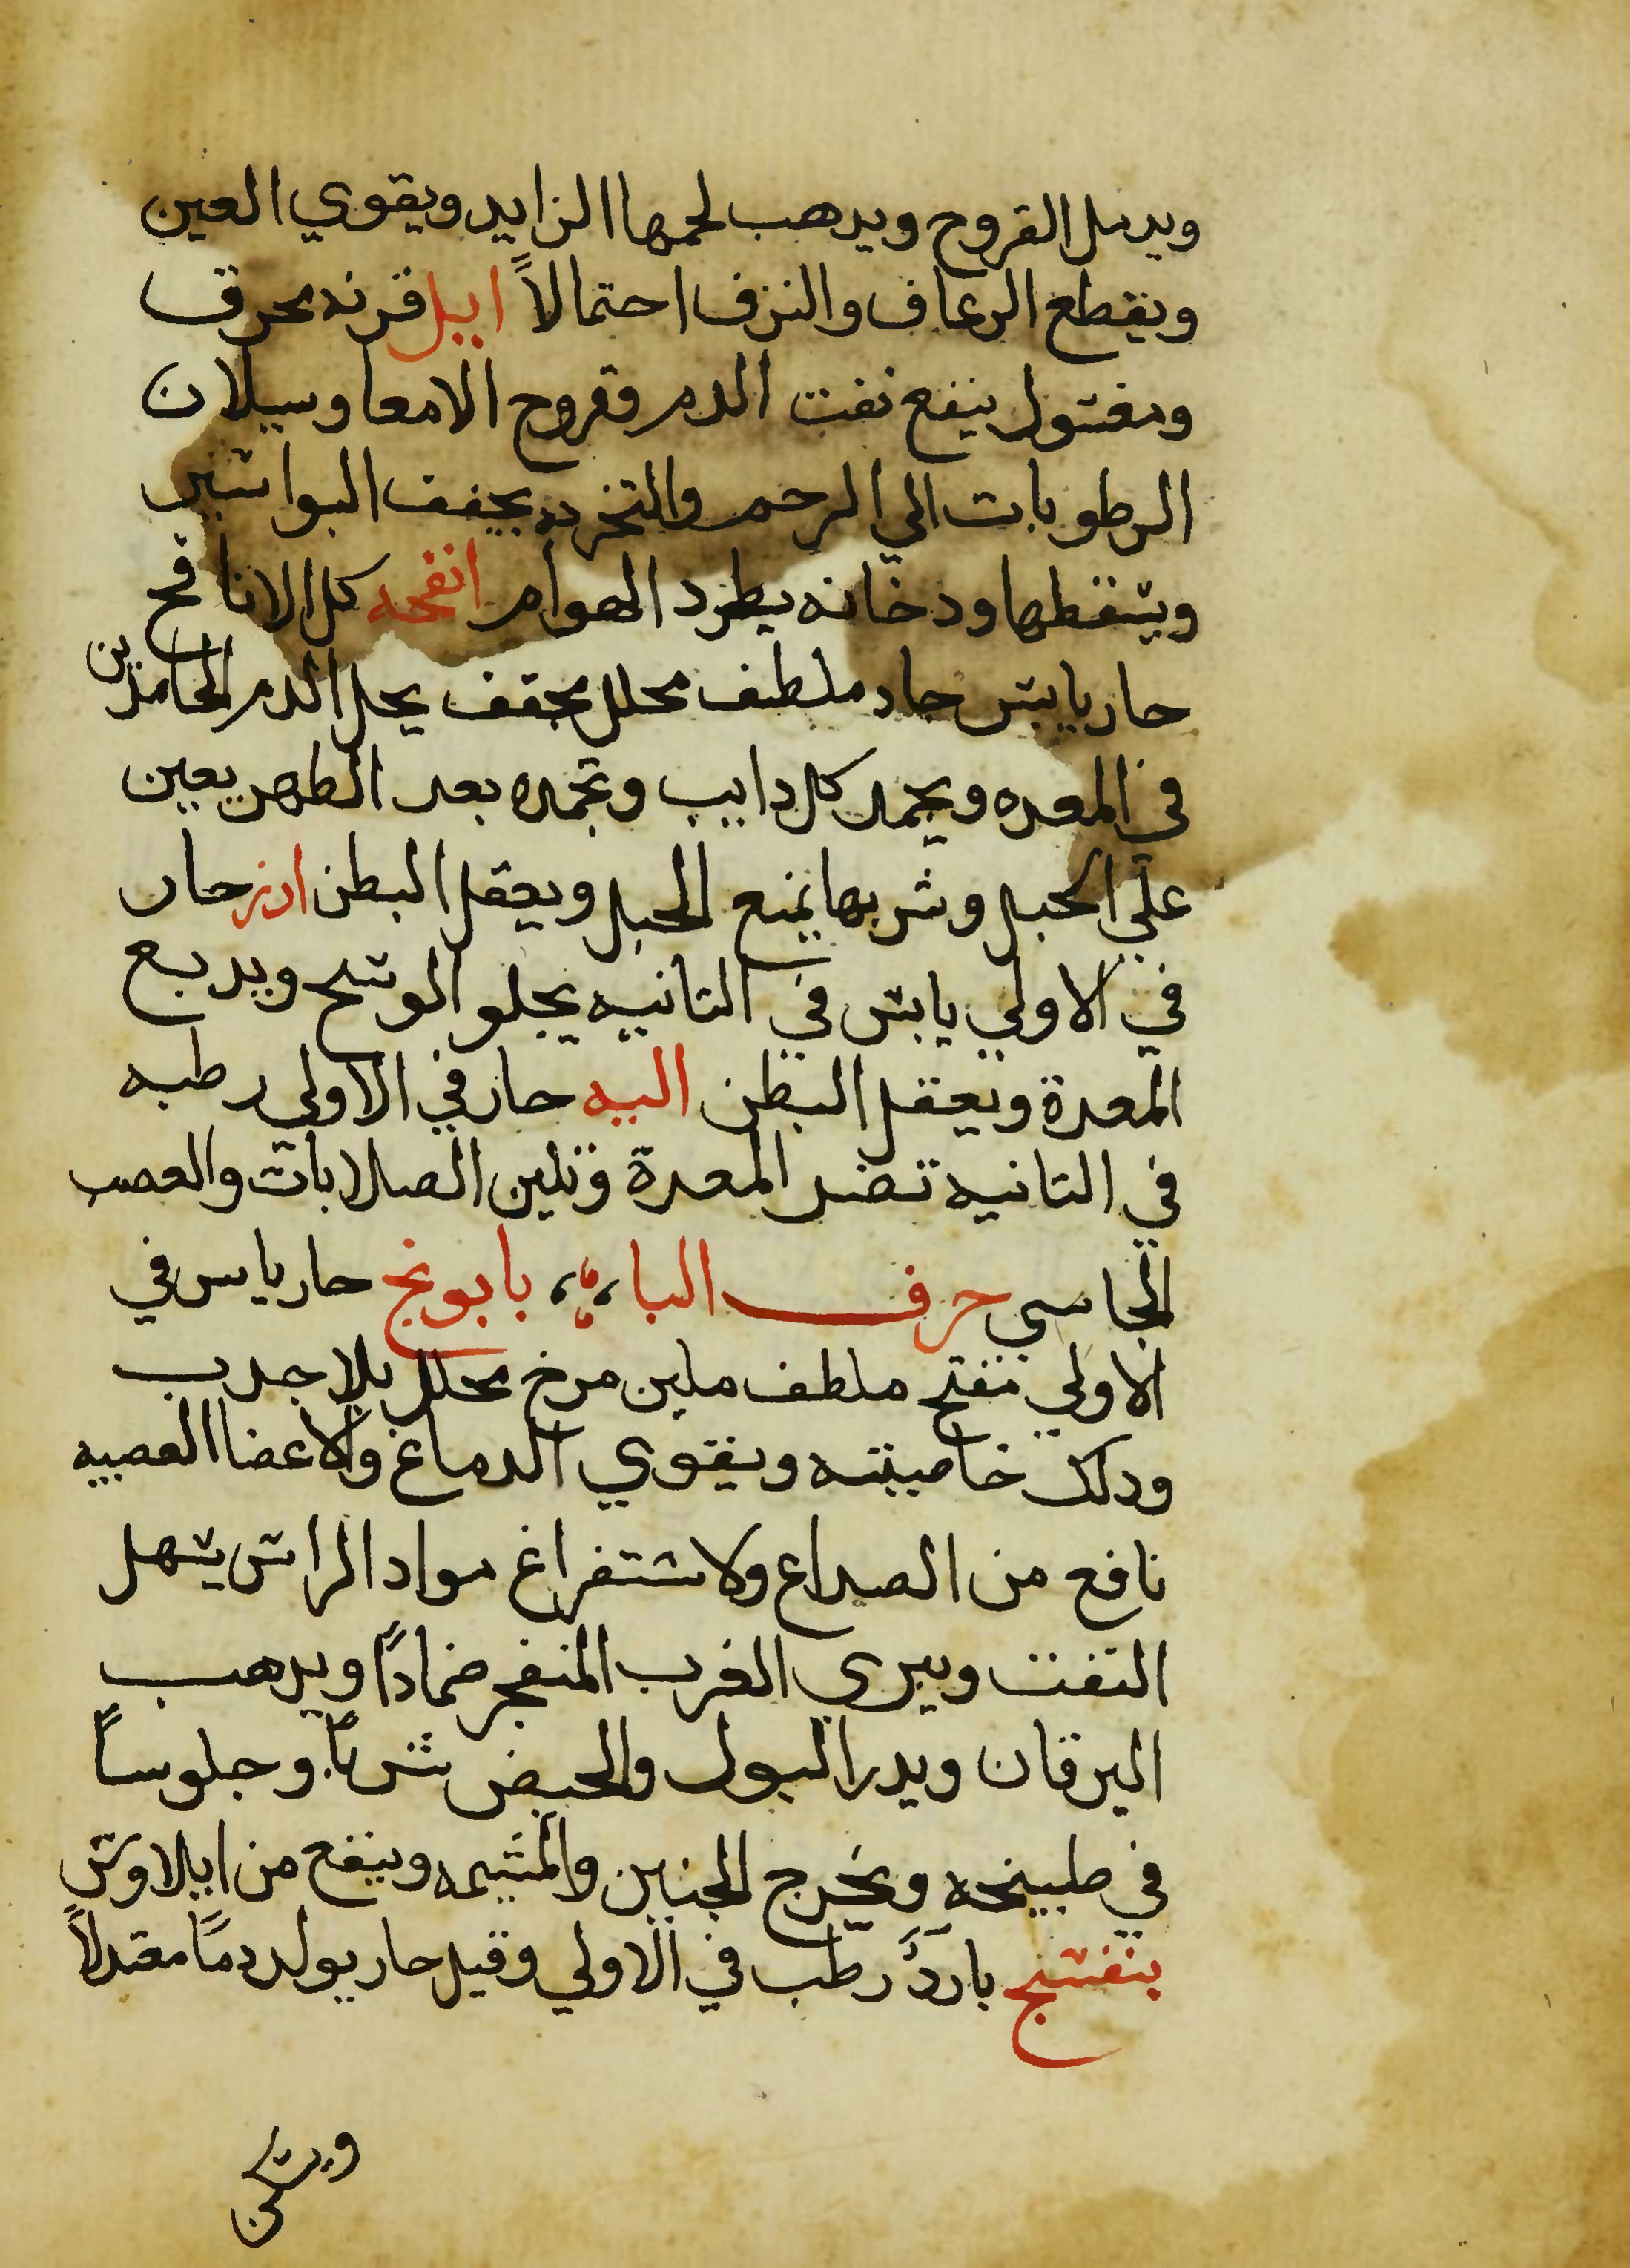 ويدمل القروح ويدهب لحمها الزايد ويقوي العين
ويقطع الرعاف والنزف احتمالاً ايل قرنه محرق
ومغتسول ينفع نفت الدم وقروح الامعا وسيلان
الرطوبات الي الرحم والتخربه يجفف البواسير
ويسقطها ودخانه يطرد الهوام انفحه كل الانافح
حار يابس حاد ملطف محلل مجفف يحل الدم الجامد بن
في المعده ويجمد كل دايب وتجمده بعد الطهر يعين
علي الحبل وشربها يمنع الحبل ويعقل البطن ارز حار
في الاولي يابس في التانيه يجلو الوسخ ويدبع
المعدة ويعقل البطن اليه حار في الاولي رطبه
في التانيه تضر المعدة وتلين الصلابات والعصب
الجاسي حرف البا بابونج حار يابس في
الاولي مفتح ملطف ملين مرخ محلل بلا جدب
ودلك خاصيته ويقوي الدماغ والاعضا العصبيه
نافع من الصداع ولاستفراغ مواد الراس يسهل
النفت ويبري الغرب المنفجر ضمادًا ويدهب
اليرقان ويدر البول والحيض شربًا وجلوسًا
في طبيخه ويخرج الجنين والمشيمه وينفع من ايلاوس
بنفسج باردٌ رطب في الاولي وقيل حار يولد دمًا معتدلاً
ويسكن